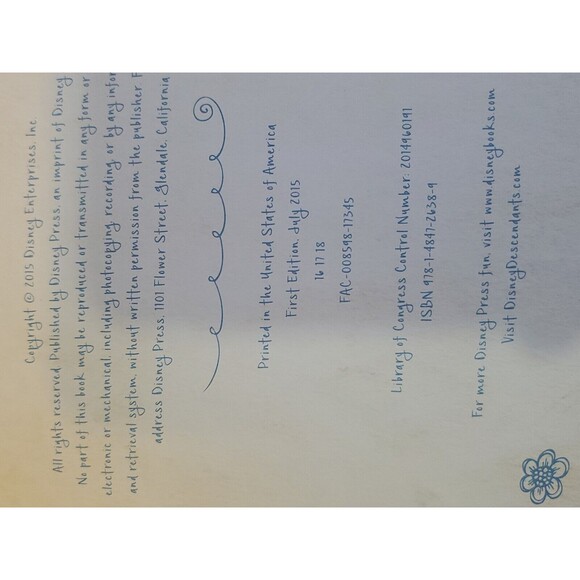 Copyright © 2015 Disney Enterprises, Inc.
All rights reserved. Published by Disney Press, an imprint of Disney
No part of this book may be reproduced or transmitted in any form or
electronic or mechanical, including photocopying, recording, or by any
and retrieval system, without written permission from the publisher.
address Disney Press, 1101 Flower Street, Glendale, California
Printed in the United States of America
First Edition, July 2015
16 17 18
FAC-008598-17345
Library of Congress Control Number: 2014960191
ISBN 978-1-4847-2638-9
For more Disney Press fun, visit www.disneybooks.com
Visit DisneyDescendants.com